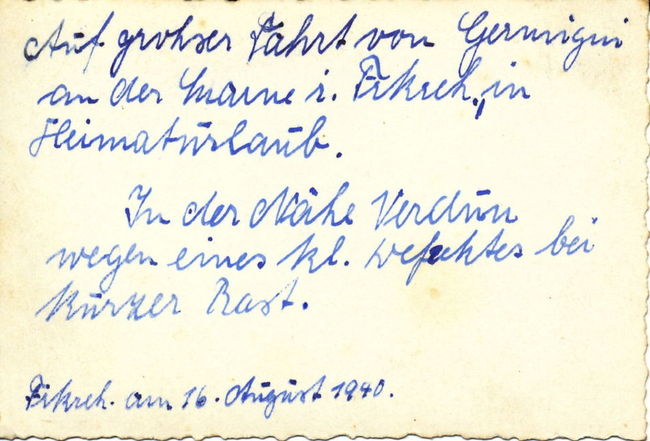 Auf grohser Fahrt von Germigni
an der Marne i. Frkrch., in
Heimaturlaub.
In der Nähe Verdun
wegen eines kl. Defektes bei
kurzer Rast.
Frkrch. am 16. August 1940.